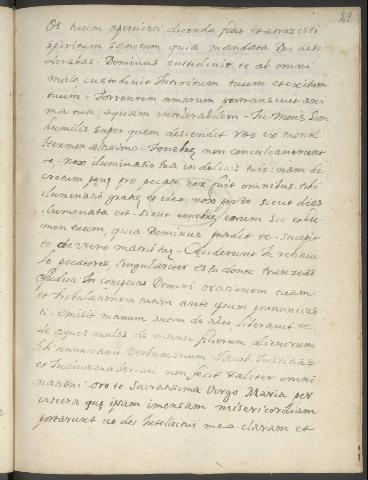 29
Os tuum aperuisti dicendo fiat et atraxisti
spiritum sanctum quia mandata Dei desi
derabas - Dominus custodivit te ab omni
malo, custodivit Introitum tuum et exitum
tuum - Torrentem amarum pertransivit ani
ma tua, aquam intolerabilem - Tu Mons Sion
humilis super quem descendit ros ex monte
Hermon altissimo - Tenebræ non conculcaverunt
te - nox iluminatio tua in deliciis tuis: nam de
cretum pro pecato nox fuit omnibus, tibi
iluminatio gratiæ, et ideo, nox sicut dies
iluminata est - sicut tenebræ eorum sic et lu
men tuum, quia Dominus te - suscepit
te de utero matris tuæ - Ceciderunt In retiacu
lo pecatores, singulariter es tu donec transeas
efudisti In conspectu Domini orationem tuam
et tribulationem tuam ante ipsum pronuncias
ti - Emisit manum suam de alto, liberavit te
de aquis multis de manu filiorum alienorum
tibi anunciavit Verbum suum Jacob. Iustitias
et Iudicia sua Israel. non fecit taliter omni
nationi - oro te Sacratissima Virgo Maria per
viscera quæ ipsam imensam misericordiam
portarunt ut des Intellectui meo claram et